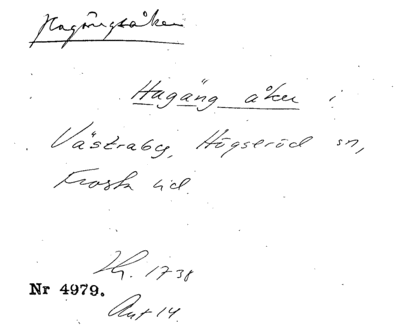 Hagängsåker
Hagäng åker i
Västraby, Högseröd sn,
Frosta hd.
Lh. 1738
Nr 4979.
Akt 14